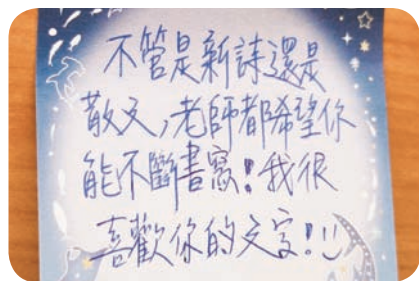 不管是新詩還是
散文,老師都希望你
能不斷書寫!我很
喜歡你的文字!!:)